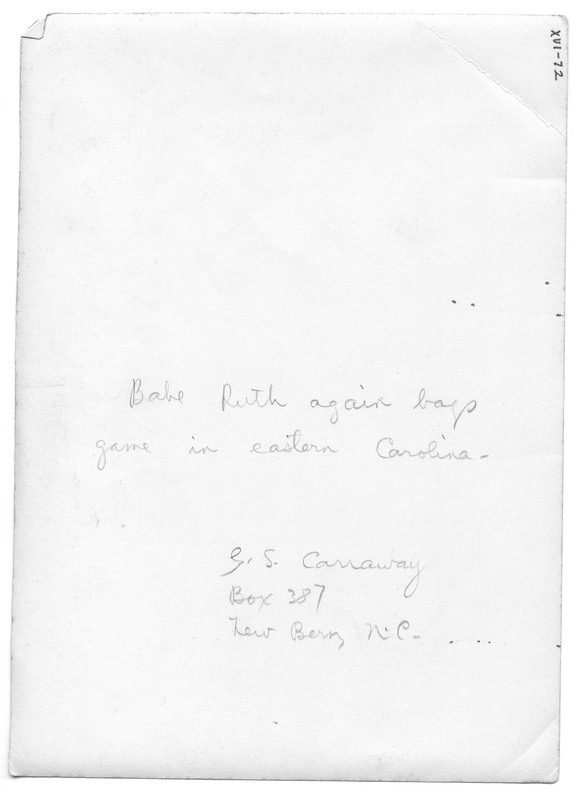 XVI-72
Babe Ruth again bags
game in eastern Carolina-
G. S. Carraway
Box 387
New Bern, N.C.